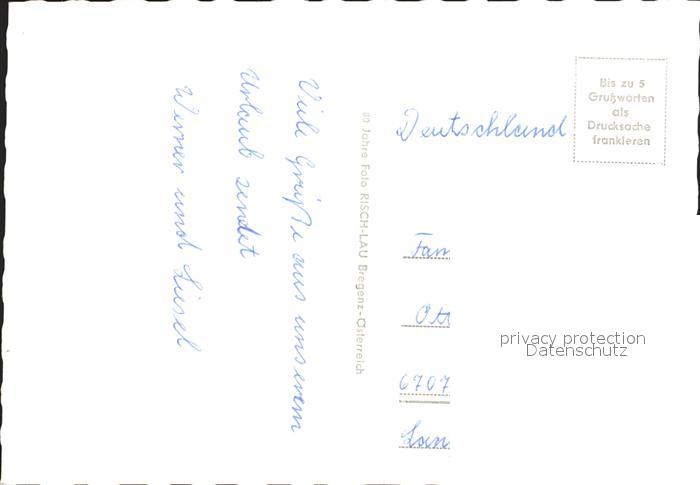 Viele Grüße aus unserem
Urlaub sendet
Werner und Liesel
80 Jahre Foto RISCH-LAU Bregenz-Österreich
Bis zu 5
Grußworten
als
Drucksache
frankieren
Deutschland
Fam
Ott
6707
privacy protection
Datenschutz